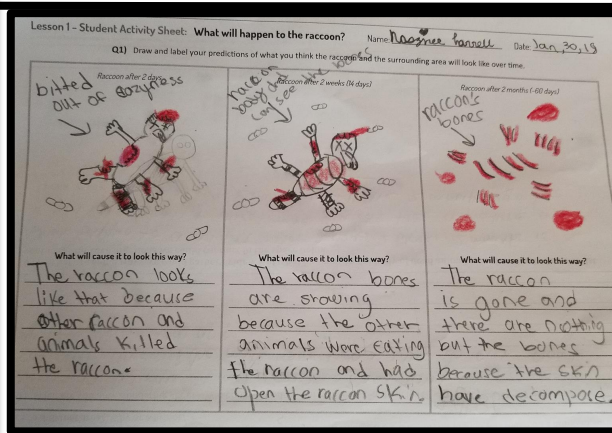 Lesson 1 - Student Activity Sheet: What will happen to the raccoon?
Name: Harrell Date: Jan, 30, 19
Q1) Draw and label your predictions of what you think the raccoon and the surrounding area will look like over time.
Raccoon after 2 days
bitted
out of
What will cause it to look this way?
The raccon looks
like that because
other raccon and
animals killed
the raccon.
Raccoon after 2 weeks (14 days)
raccon
body and
can see the bones
What will cause it to look this way?
The raccon bones
are showing
because the other
animals were eating
the raccon and had
open the raccon skin.
Raccoon after 2 months (~60 days)
raccon's
bones
What will cause it to look this way?
The raccon
is gone and
there are nothing
but the bones
because the skin
have decompose.